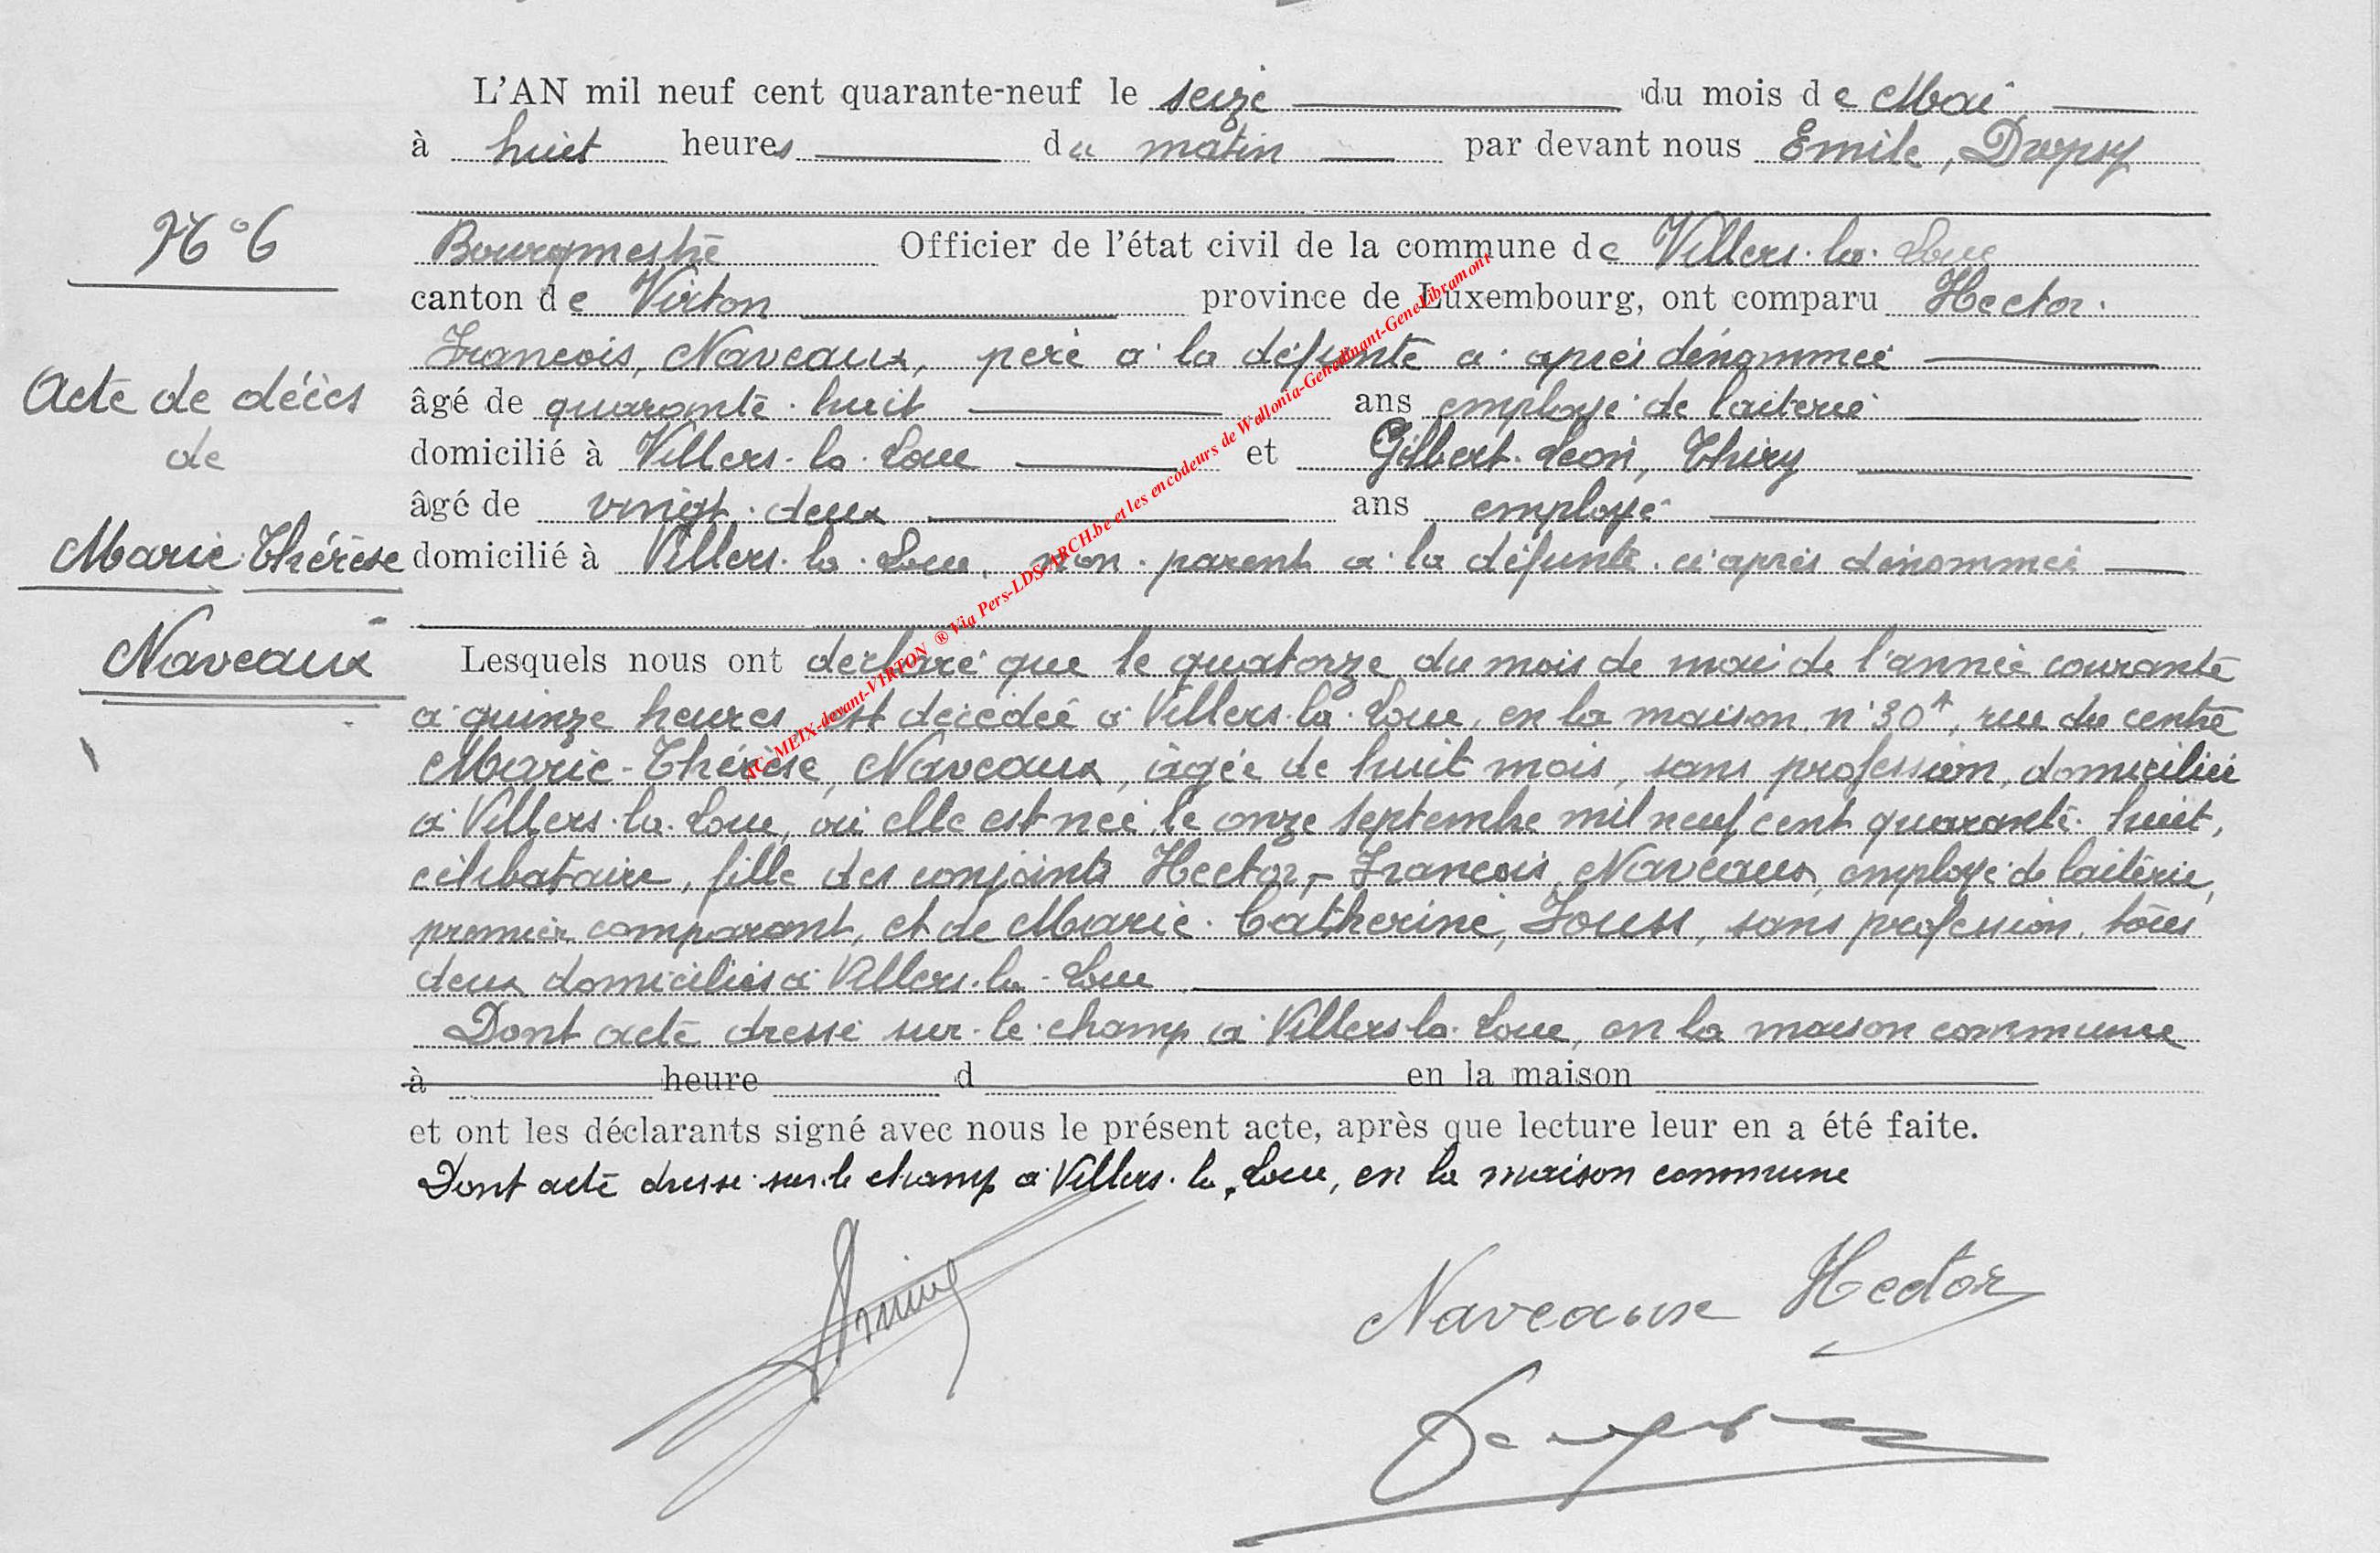 L'AN mil neuf cent quarante-neuf le seize du mois de Mai
à huit heures du matin par devant nous Emile, Dupsy
N° 6
Bourgmestre Officier de l'état civil de la commune de Villers-la-Loue
canton de Virton province de Luxembourg, ont comparu Hector-
François, Naveaux, père à la défunte ci-après dénommée
Acte de décès
âgé de quarante-huit ans employé de laiterie
de
domicilié à Villers-la-Loue et Gilbert-Léon, Thiry
âgé de vingt-deux ans employé
Marie-Thérèse
domicilié à Villers-la-Loue, non-parent à la défunte ci-après dénommée
Naveaux
Lesquels nous ont déclaré que le quatorze du mois de mai de l'année courante
à quinze heures est décédée à Villers-la-Loue, en la maison, n° 30A, rue du centre
Marie-Thérèse, Naveaux, âgée de huit mois, sans profession, domiciliée
à Villers-la-Loue, où elle est née le onze septembre mil neuf cent quarante-huit,
célibataire, fille des conjoints Hector-François, Naveaux, employé de laiterie,
premier comparant, et de Marie-Catherine, sans profession, tous
deux domiciliés à Villers-la-Loue
Dont acte dressé sur-le-champ à Villers-la-Loue, en la maison commune
à heure d en la maison
et ont les déclarants signé avec nous le présent acte, après que lecture leur en a été faite.
Dont acte dressé sur-le-champ à Villers-la-Loue, en la maison commune
Naveaux Hector
AC-METX-devant-VIRTON ® Via Pers-LDS-ARCH.be et les encodeurs de Wallonia-Genedinant-GeneLibramont